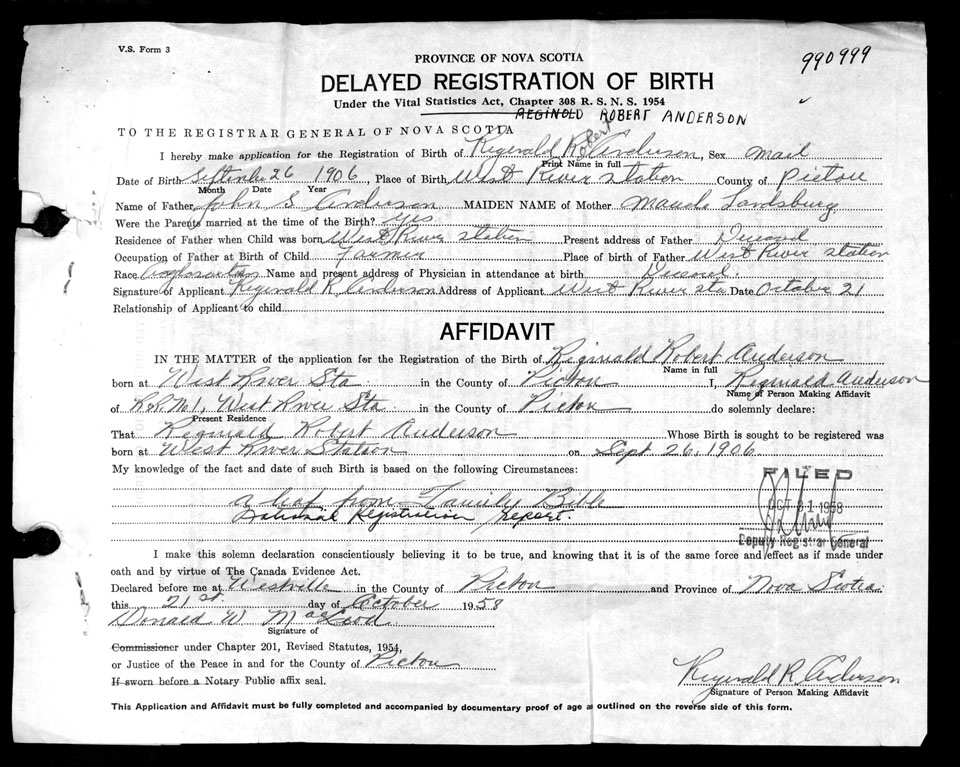 V.S. Form 3
990999
PROVINCE OF NOVA SCOTIA
DELAYED REGISTRATION OF BIRTH
Under the Vital Statistics Act, Chapter 308 R. S. N. S. 1954
REGINOLD ROBERT ANDERSON
TO THE REGISTRAR GENERAL OF NOVA SCOTIA
I hereby make application for the Registration of Birth of Reginald Robert Anderson, Sex mail
Print Name in full
Date of Birth September 26 1906, Place of Birth West River station County of Pictou
Month Date Year
Name of Father John S Anderson MAIDEN NAME of Mother Maude Landsburg
Were the Parents married at the time of the Birth? yes
Residence of Father when Child was born West River station Present address of Father Deceased
Occupation of Father at Birth of Child Farmer Place of birth of Father West River station
Race Name and present address of Physician in attendance at birth
Signature of Applicant Reginald R. Anderson Address of Applicant West River sta Date October 21
Relationship of Applicant to child
AFFIDAVIT
IN THE MATTER of the application for the Registration of the Birth of Reginald Robert Anderson
Name in full
born at West River Sta. in the County of Pictou I, Reginald Anderson
Name of Person Making Affidavit
of R.R. No 1, West River Sta in the County of Pictou do solemnly declare:
Present Residence
That Reginald Robert Anderson Whose Birth is sought to be registered was
born at West River Station on Sept 26, 1906
My knowledge of the fact and date of such Birth is based on the following Circumstances:
a leaf from Family Bible
National Registration report.
FILED
OCT 31 1958
Deputy Registrar General
I make this solemn declaration conscientiously believing it to be true, and knowing that it is of the same force and effect as if made under
oath and by virtue of The Canada Evidence Act.
Declared before me at Westville in the County of Pictou and Province of Nova Scotia
this 21st day of October 1958
Donald W. MacLeod
Signature of
Commissioner under Chapter 201, Revised Statutes, 1954,
or Justice of the Peace in and for the County of Pictou
If sworn before a Notary Public affix seal.
Reginald R Anderson
Signature of Person Making Affidavit
This Application and Affidavit must be fully completed and accompanied by documentary proof of age as outlined on the reverse side of this form.